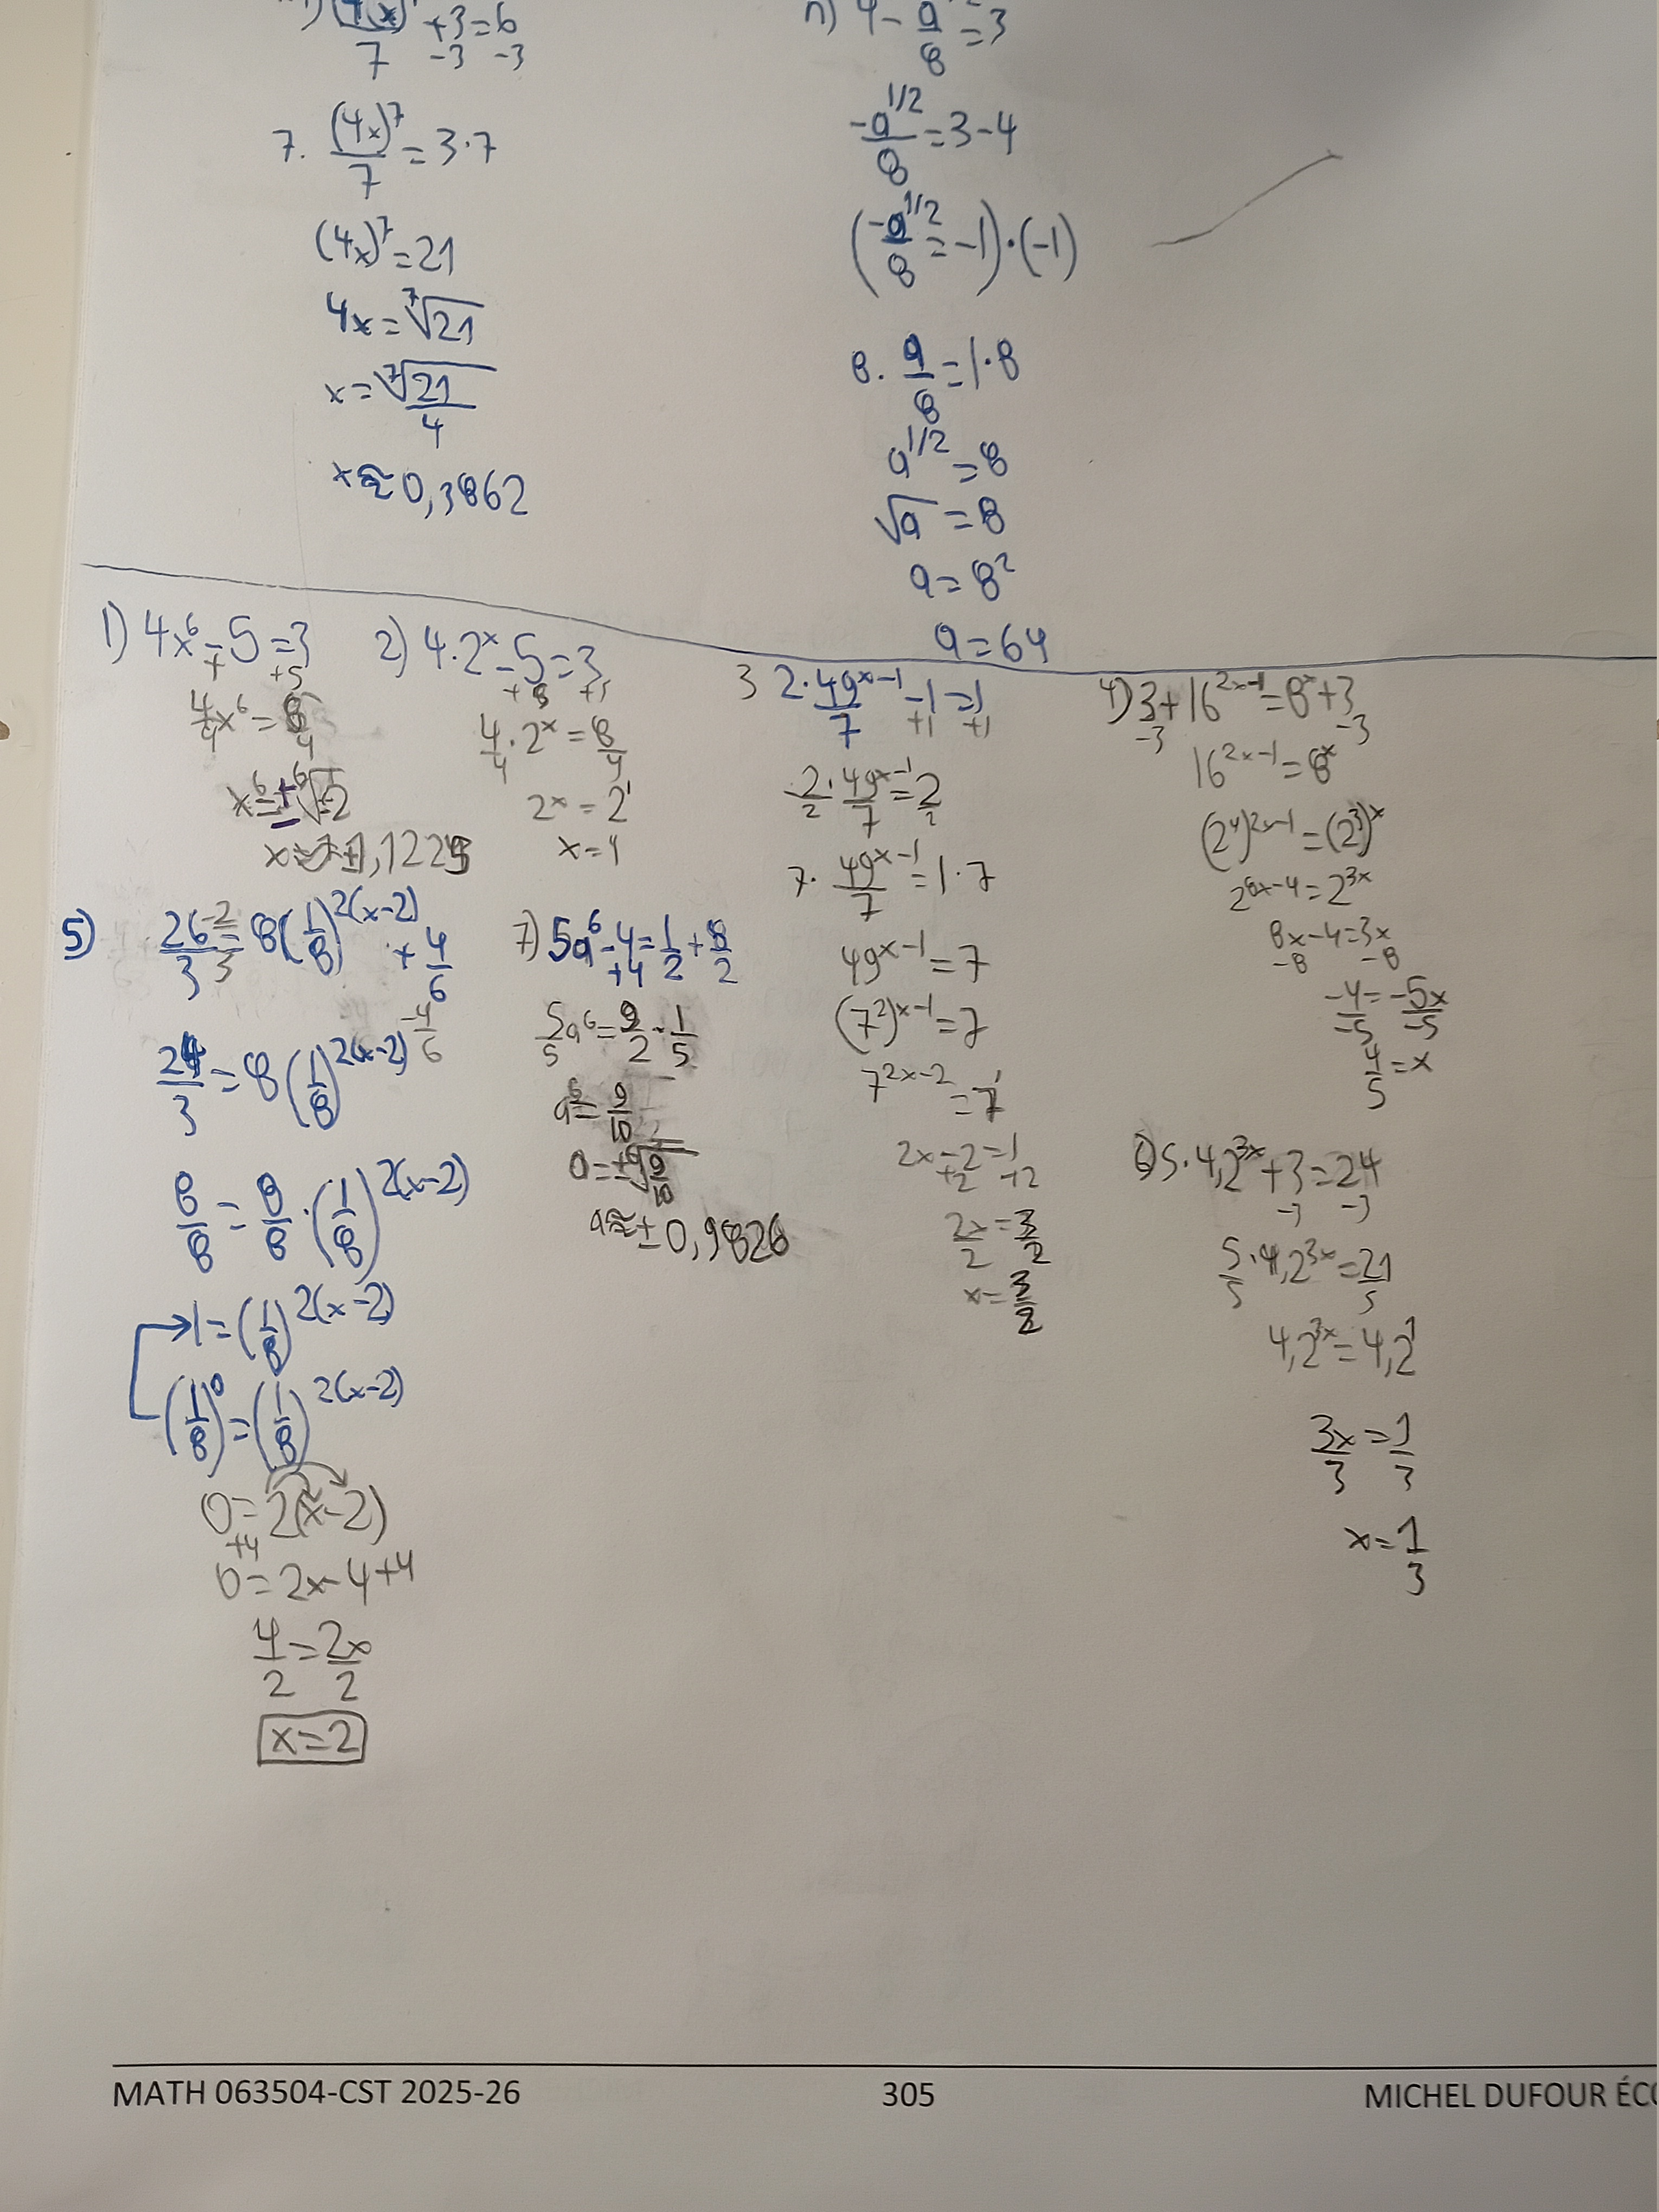 7 -3 -3
+3=6
7. (4x)^7/7 = 3·7
(4x)^7 = 21
4x = ⁷√21
x = ⁷√21/4
x ≈ 0,3862
n) 4 - a/8 = 3
-a^1/2/8 = 3-4
(-a^1/2/8 = -1)·(-1)
8. a/8 = 1·8
a^1/2 = 8
√a = 8
a = 8²
a = 64
1) 4x^6 - 5 = 3
+ +5
4/4 x^6 = 8/4
x^6 = ± ⁶√2
2) 4·2^x - 5 = 3
4/4 · 2^x = 8/4
2^x = 2^1
x = 1
3 2·49^x-1/7 - 1 = 1
+1 +1
2/2 · 49^x-1/7 = 2/2
7. 49^x-1/7 = 1·7
49^x-1 = 7
(7²)^x-1 = 7
7^2x-2 = 7^1
2x-2 = 1
+2 +2
2x/2 = 3/2
x = 3/2
4) 3+16^2x-1 = 8^x+3
-3 -3
16^2x-1 = 8^x
(2^4)^2x-1 = (2^3)^x
2^8x-4 = 2^3x
8x-4 = 3x
-8 -8
-4/-5 = -5x/-5
4/5 = x
5) 26-2/3 3 = 8(1/8)^2(x-2) + 4/6
-4/6
24/3 = 8(1/8)^2(x-2)
8/8 = 8/8·(1/8)^2(x-2)
1 = (1/8)^2(x-2)
(1/8)^0 = (1/8)^2(x-2)
0 = 2(x-2)
+4
0 = 2x-4+4
4/2 = 2x/2
x=2
7) 5a^6 - 4 = 1/2 + 8/2
+4
5/5 a^6 = 9/2 · 1/5
a^6 = 9/10
a = ± ⁶√9/10
a ≈ ±0,9826
6) 5·4,2^3x + 3 = 24
-3 -3
5/5·4,2^3x = 21/5
4,2^3x = 4,2^1
3x/3 = 1/3
x = 1/3
MATH 063504-CST 2025-26
305
MICHEL DUFOUR ÉC